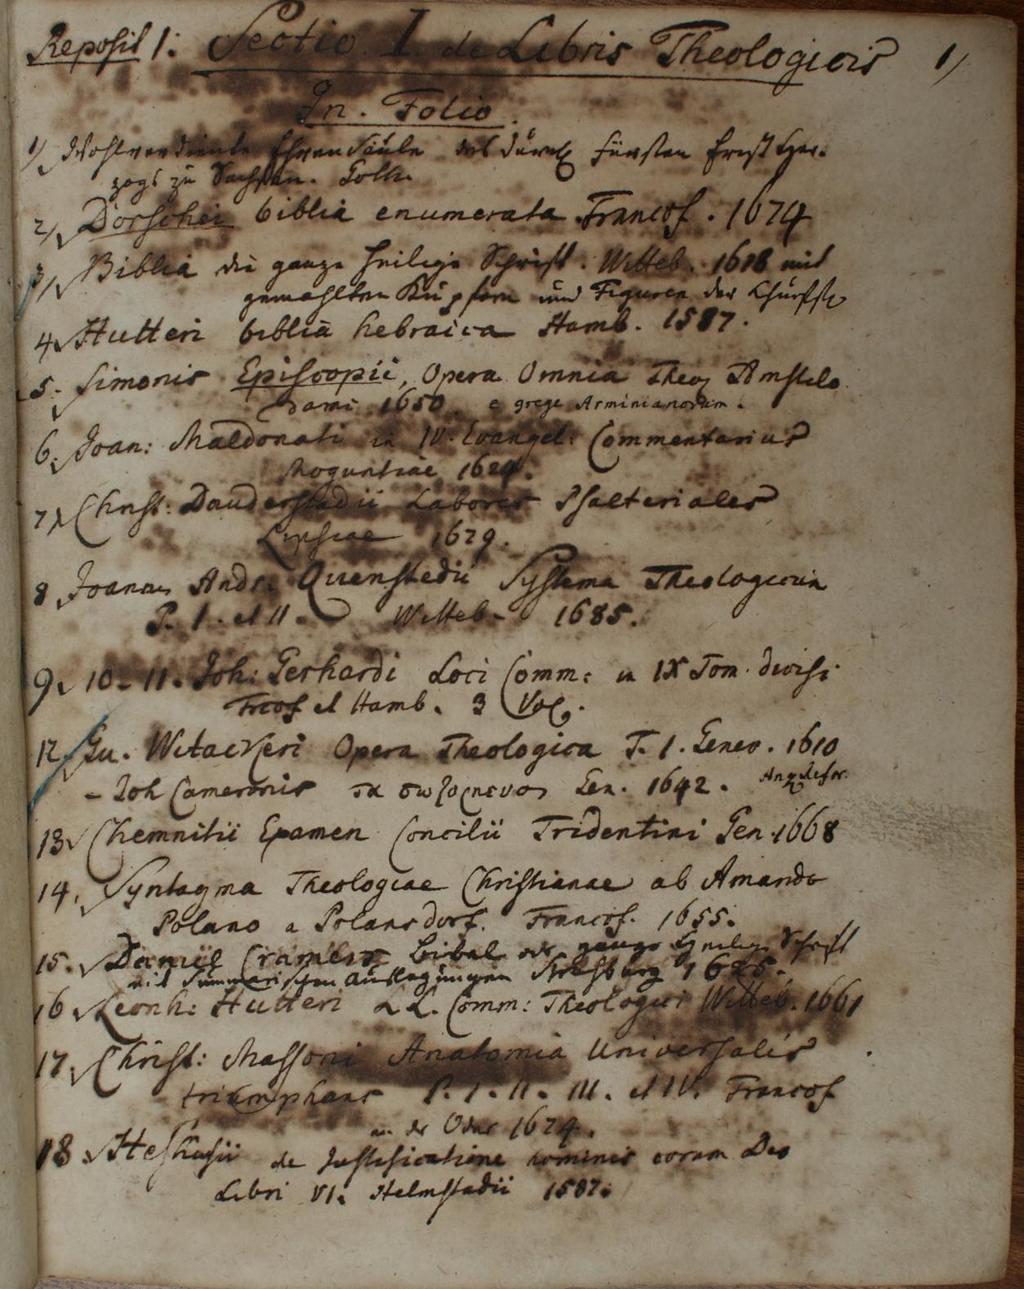 Reposit 1. Sectio. I de Libris Theologicis 1)
In. Folio.
1) Wohlverdiente Ehren Säule des Fürsten Ernst Her-
zogs zu Sachsen. Goth.
2) Dorschei biblia enumerata Francof. 1674
3) Biblia die ganze Heilige Schrift. Witteb. 1618 mit
gemahlten Kupfern und Figuren der Churfst
4 Hutteri biblia hebraica Hamb. 1587.
5. Simonis Episcopii, Opera Omnia Theol Amstelo
dami 1650. e grege Arminianorum.
6. Joan: Maldonati in IV. Evangel: Commentarius
Moguntiae 1624.
7) Christ: Dauderstadii Labores Psalteriales
Lipsiae 1679.
8 Joannis Andr. Quenstedii Systema Theologicum
P. I. et II. Witteb- 1685.
9. 10- 11. Joh: Gerhardi Loci Comm: in IX Tom. divisi
Frcof et Hamb. 3 Vol.
12 Gu. Witackeri Opera Theologica T. 1. Genev. 1610
- Joh Cameronis τα σωζομενα Gen. 1642.
13 Chemnitii Examen Concilii Tridentini Gen. 1668
14, Syntagma Theologiae Christianae ab Amando
Polano a Polansdorf. Francof. 1655.
15. Daniel Cramers Bibel oder ganze Heilige Schrift
mit Summarischen Auslegungen Straßburg
16 Leonh: Hutteri LL. Comm: Theologici Witteb. 1661
17, Christ: Massoni Anatomia Universalis
triumphans P. I. II. III. et IV. Francof
an der Oder 1674.
18. Heshusii de Justificatione hominis coram Deo
Libri VI. Helmstadii 1587.